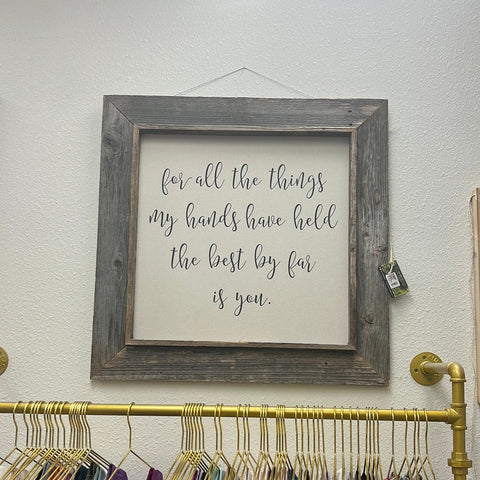 for all the things
my hands have held
the best by far
is you.